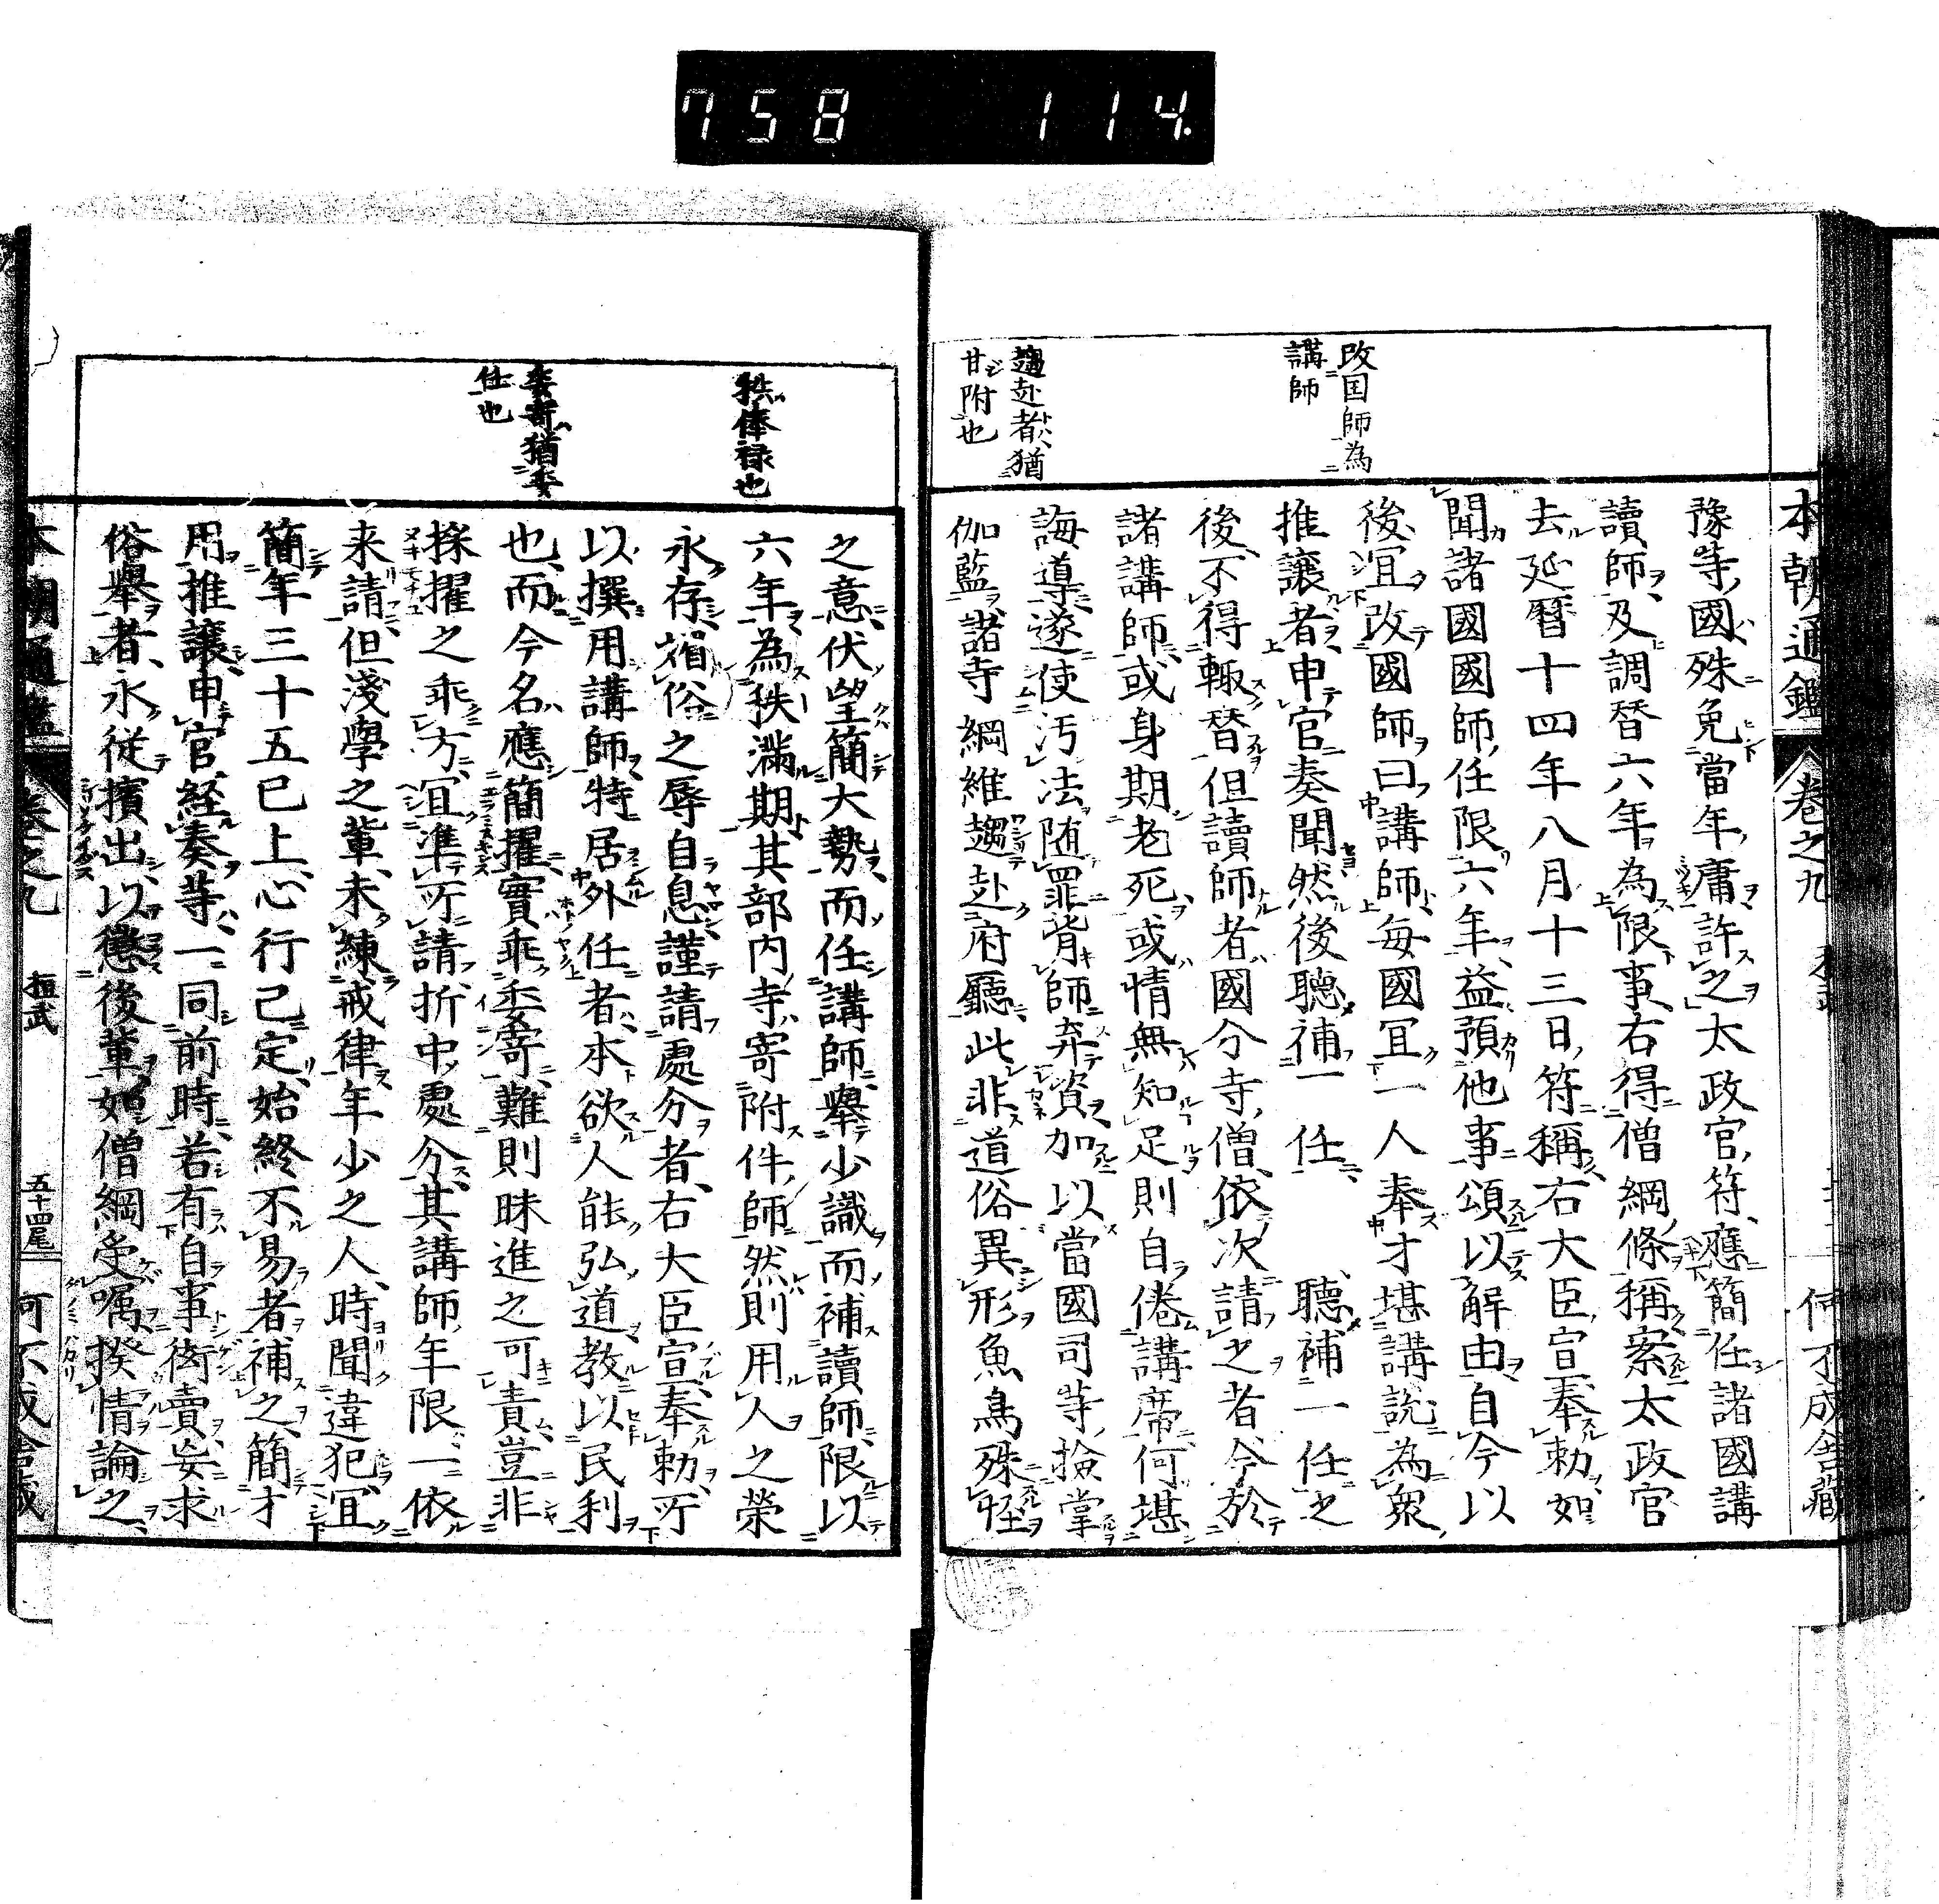 758 114.
本朝通鑑 卷之九
何不成舎藏
改国師為
講師
趨赴者猶
甘附也
豫等國殊免當年庸許之太政官符應簡任諸國講
讀師及調替六年為限事右得僧綱條稱案太政官
去延曆十四年八月十三日符稱右大臣宣奉勅如
聞諸國國師任限六年益預他事頌以解由自今以
後冝改國師曰講師每國冝一人奉才堪講說為衆
推讓者申官奏聞然後聽補一任聽補一任之
後不得輙替但讀師者國分寺僧依次請之者今於
諸講師或身期老死或情無知足則自倦講席何堪
誨導遂使汚法随罪背師弃資加以當國司等撿掌
伽藍諸寺綱維趨赴府廳此非道俗異形魚鳥殊性
秩俸禄也
委寄猶委
仕也
之意伏望簡大勢而任講師舉少識而補讀師限以
六年為秩滿期其部内寺寄附件師然則用人之榮
永存損俗之辱自息謹請處分者右大臣宣奉勅所
以撰用講師特居外任者本欲人能弘道教以民利
也而今名應簡擢實乖委寄難則昧進之可責豈非
採擢之乖方冝準所請折中處分其講師年限一依
来請但淺學之輩未練戒律年少之人時聞違犯冝
簡年三十五已上心行已定始終不易者補之簡才
用推讓申官經奏等一同前時若有自事衒賣妄求
俗舉者永從擯出以懲後輩如僧綱受嘱揆情論之
本朝通鑑 卷之九 桓武 五十四尾 何不成舎藏